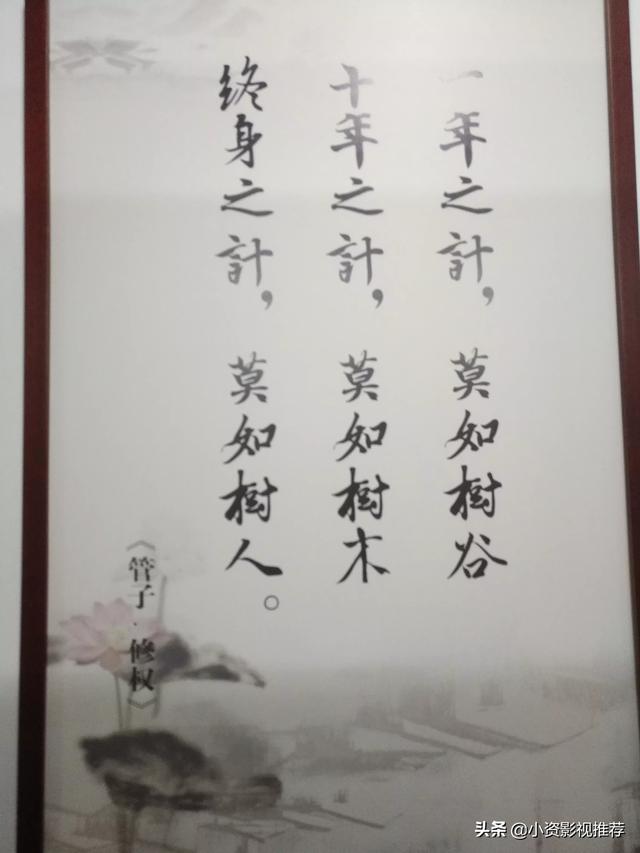 一年之計，莫如樹谷
十年之計，莫如樹木
終身之計，莫如樹人。
《管子·修权》
头条 @小资影视推荐